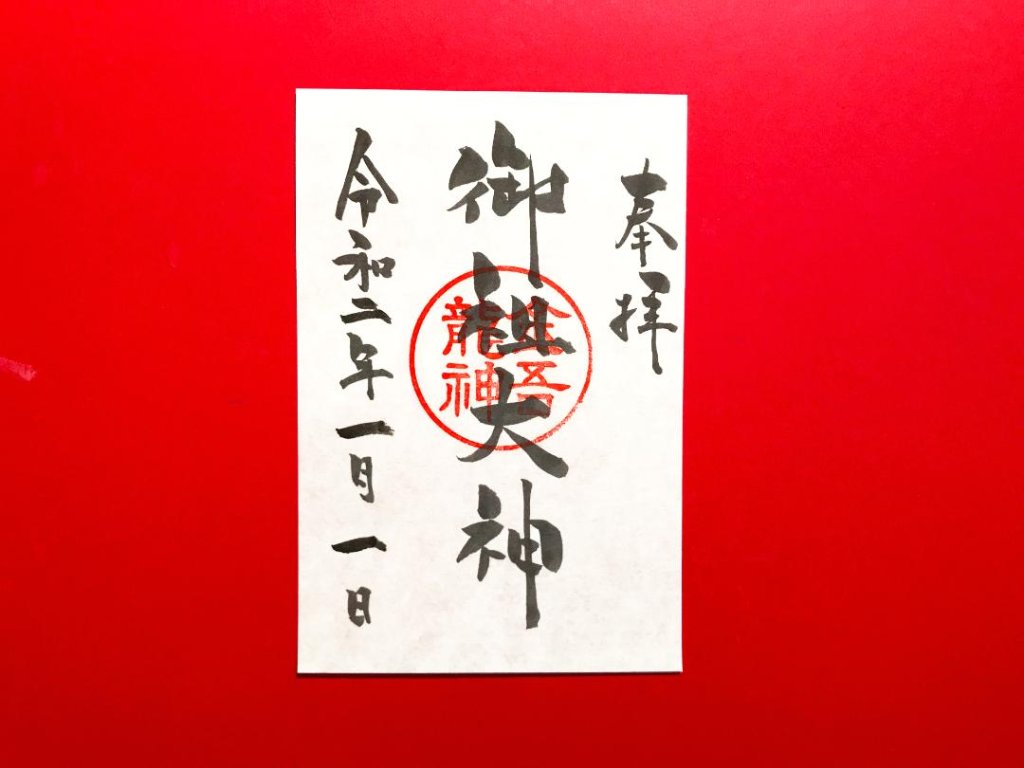 奉拝
御祖大神
金吾
龍神
令和二年一月一日